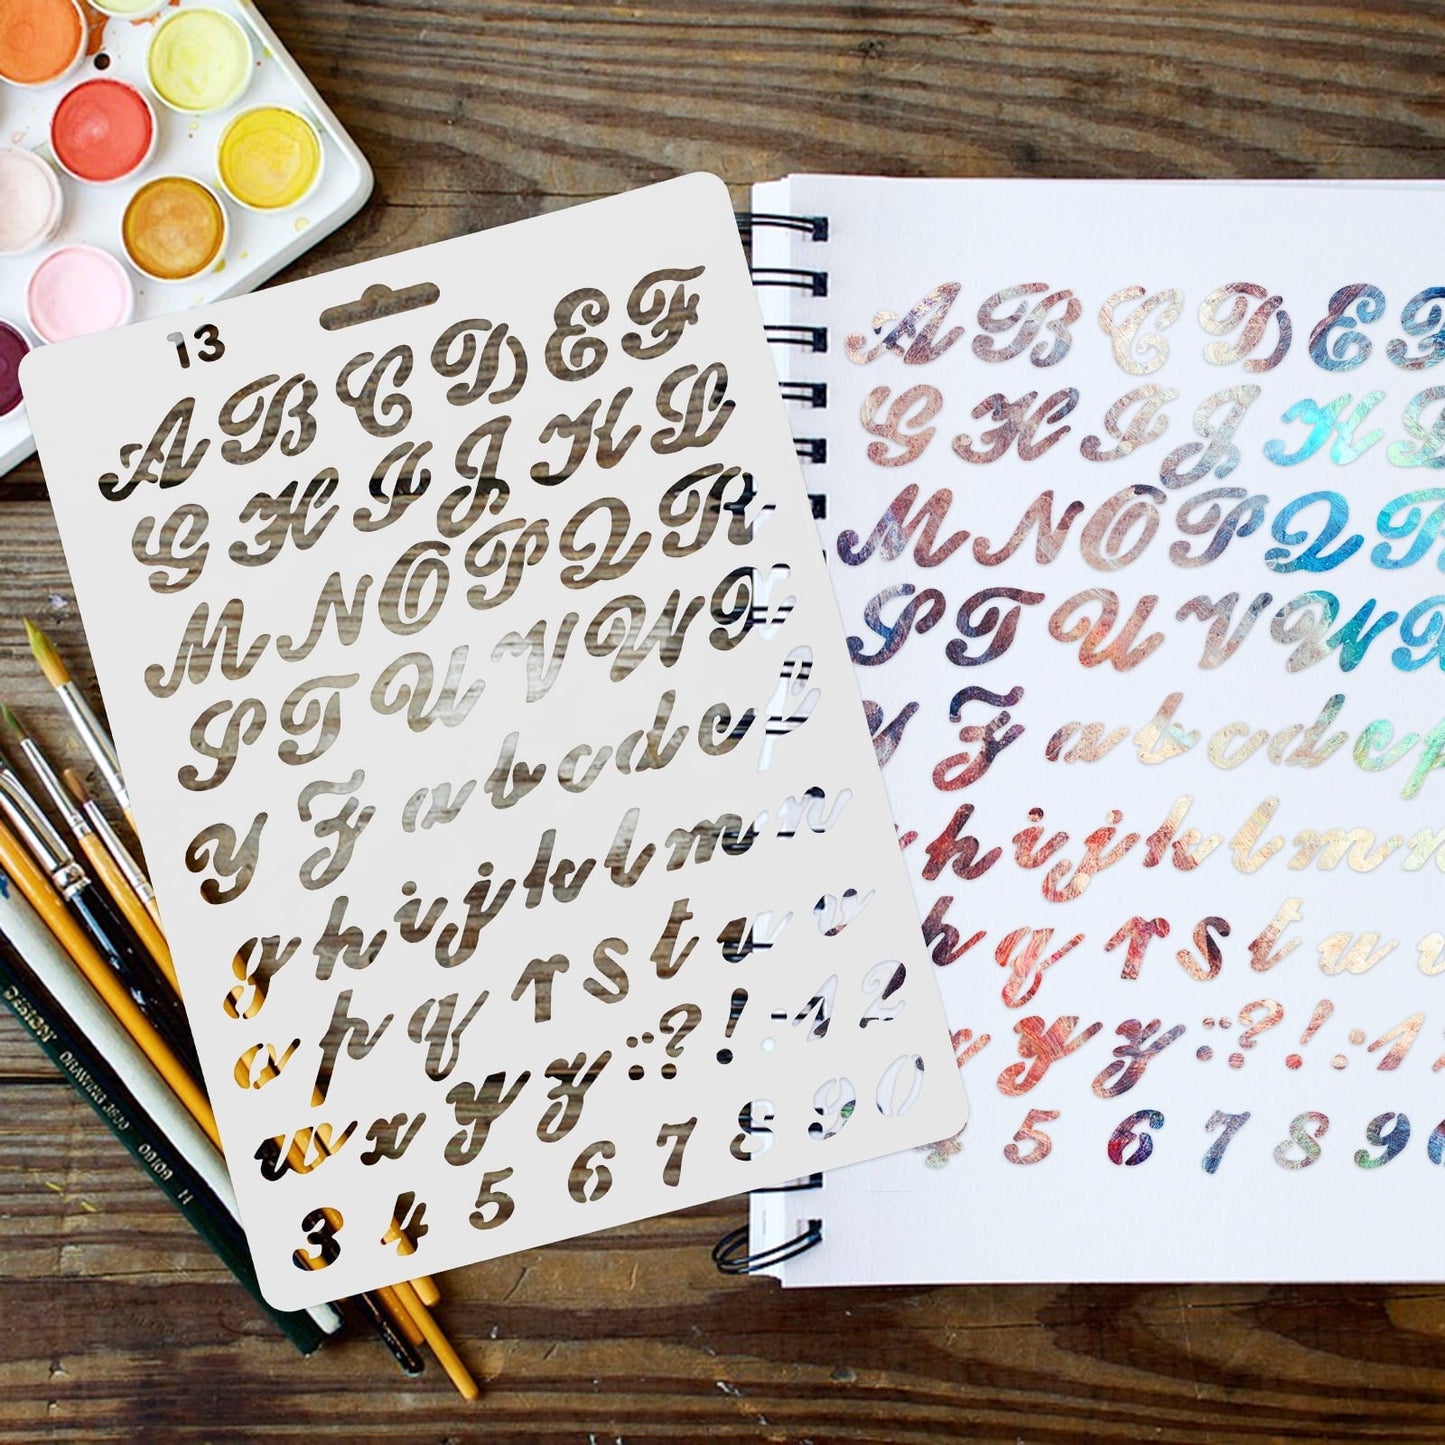 13
A B C D E F
G H I J K L
M N O P Q R
S T U V W X
Y Z a b c d e f
g h i j k l m n
o p q r s t u v
w x y z : : ? ! : 1 2
3 4 5 6 7 8 9 0
A B C D E F
G H I J K L
M N O P Q R
S T U V W X
Y Z a b c d e f
h i j k l m n
p q r s t u v
x y z : : ? ! : 1
4 5 6 7 8 9 0
DESIGN DRAWING